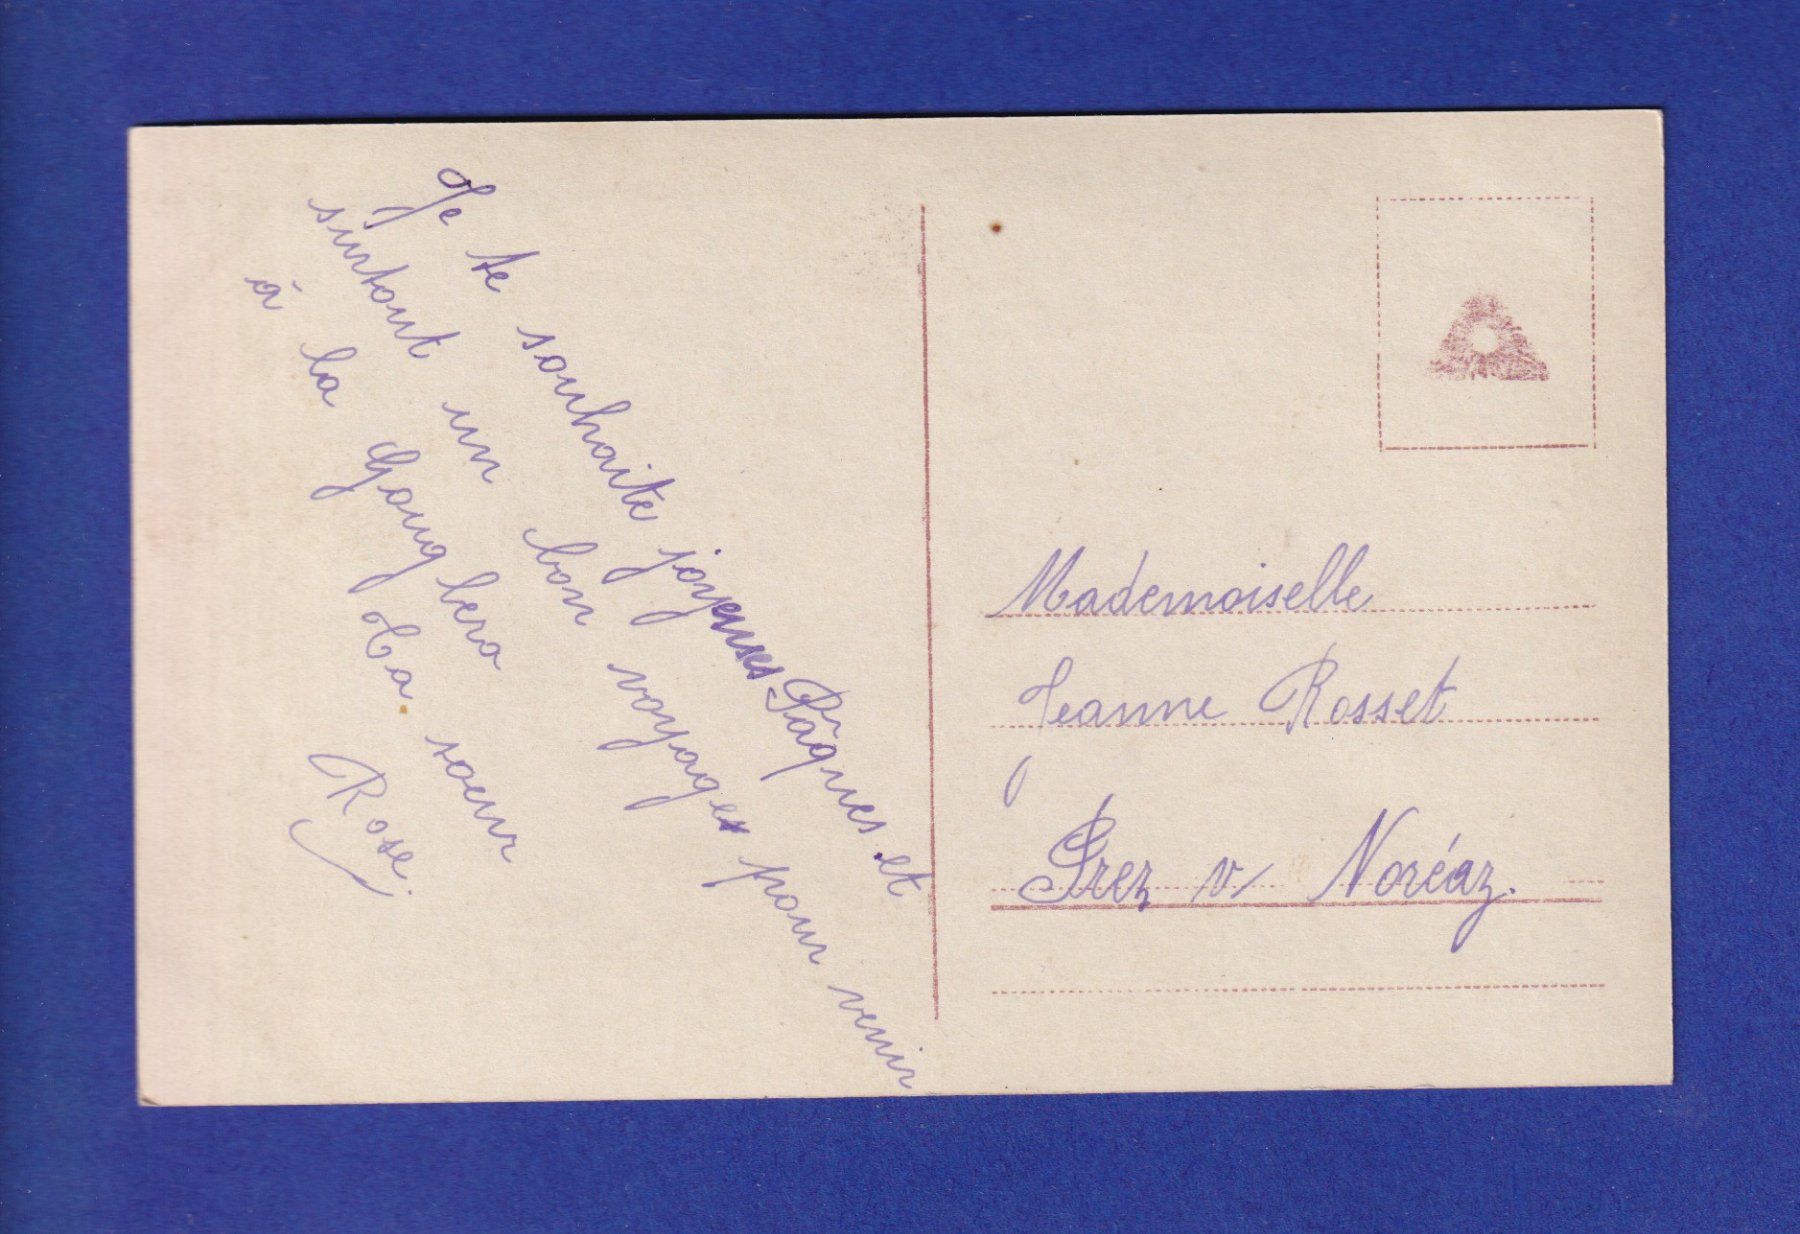 Je te souhaite joyeuses Pâques et
surtout un bon voyage pour venir
à la Gouglera
Ta soeur
Rose.
Mademoiselle
Jeanne Rosset
Prez v/ Noréaz.